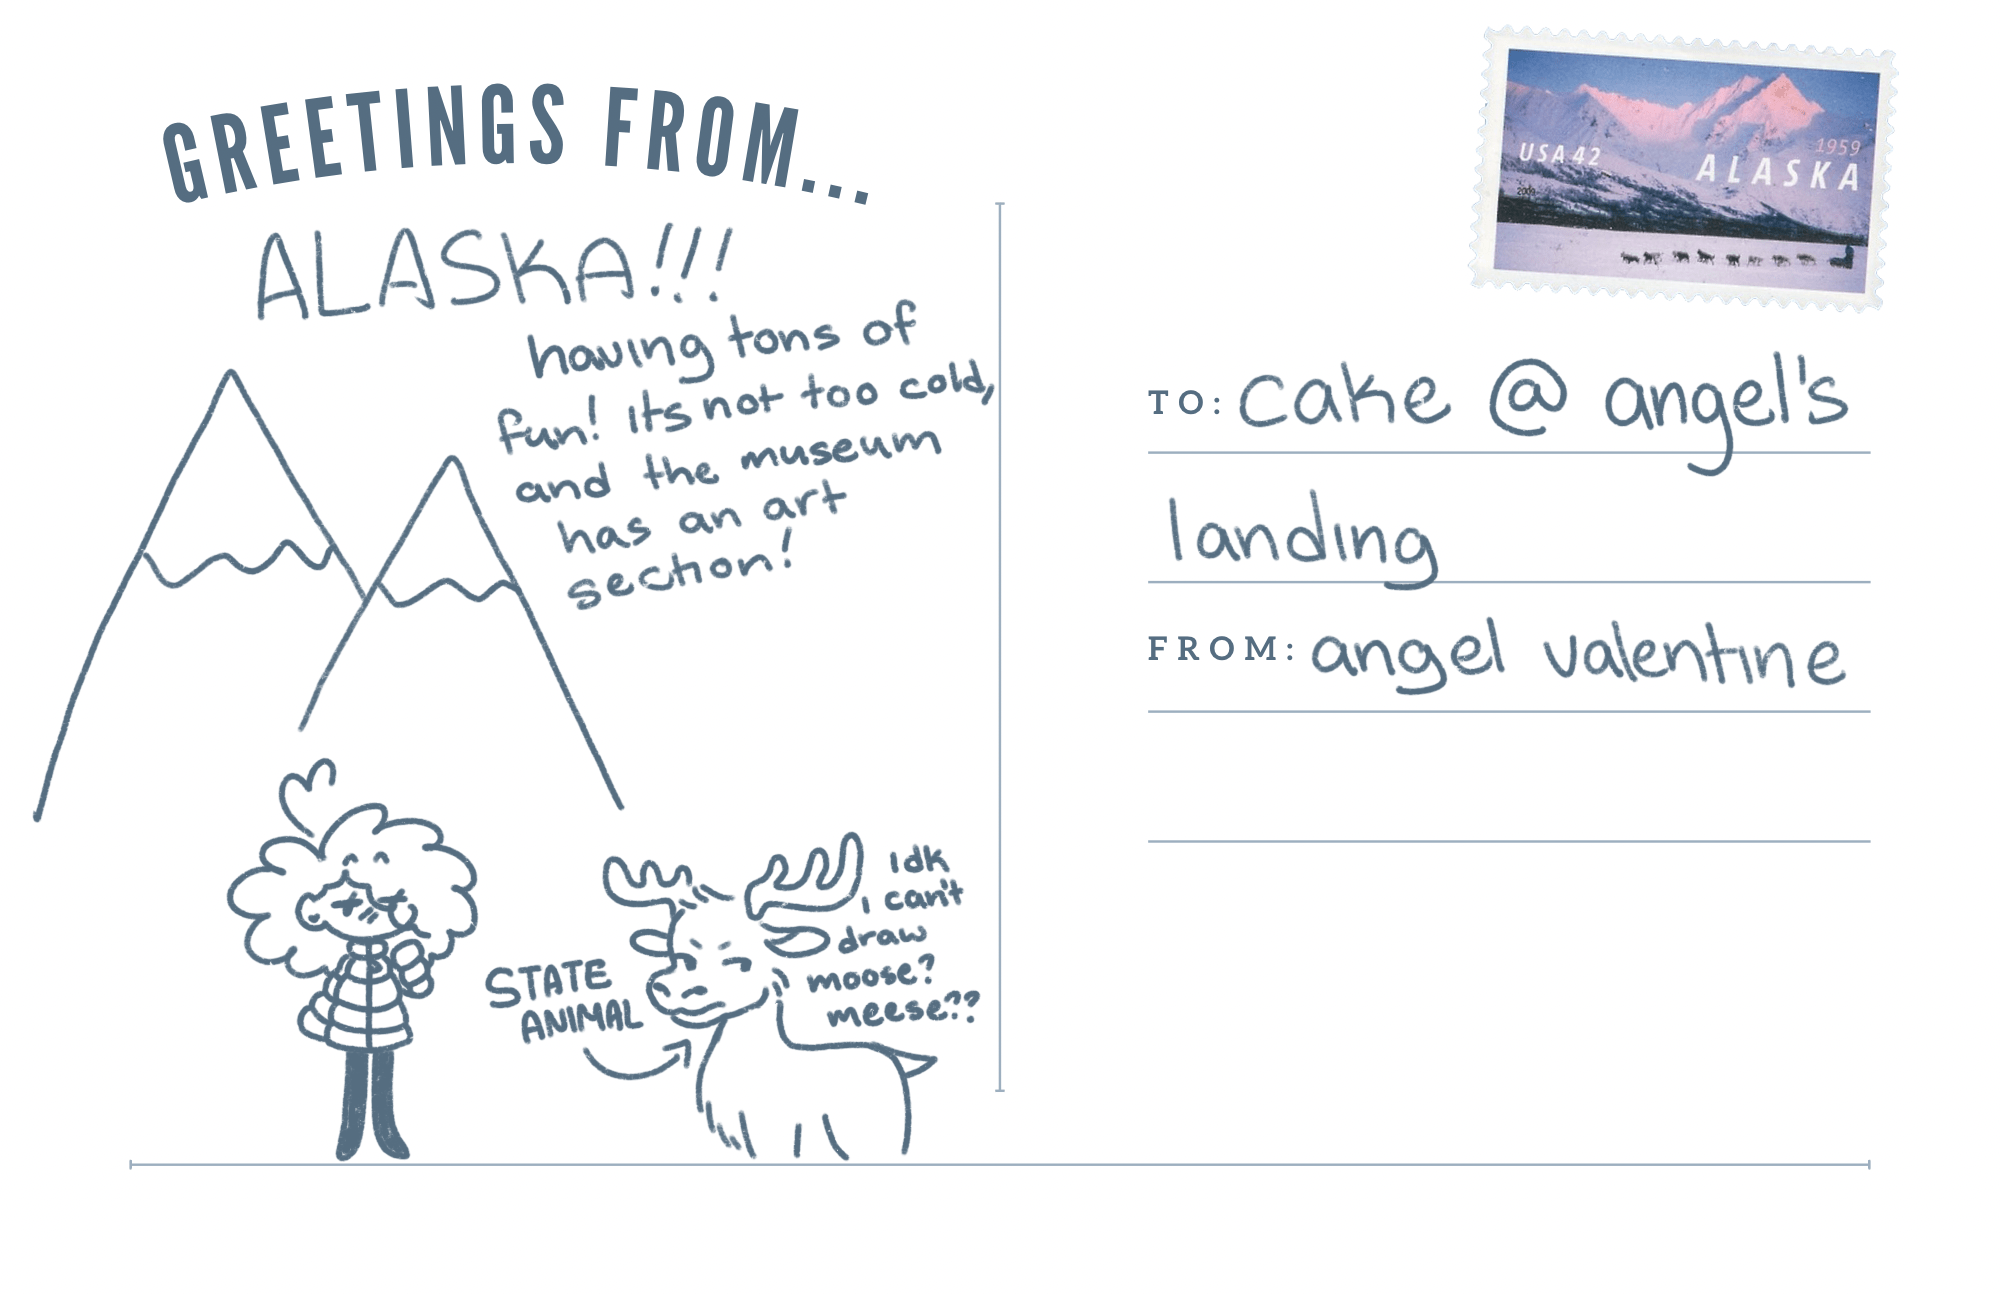 GREETINGS FROM...
ALASKA!!!
having tons of
fun! its not too cold,
and the museum
has an art
section!
STATE
ANIMAL
idk
i can't
draw
moose?
meese??
USA 42
1959
ALASKA
2009
TO: cake @ angel's
landing
FROM: angel valentine